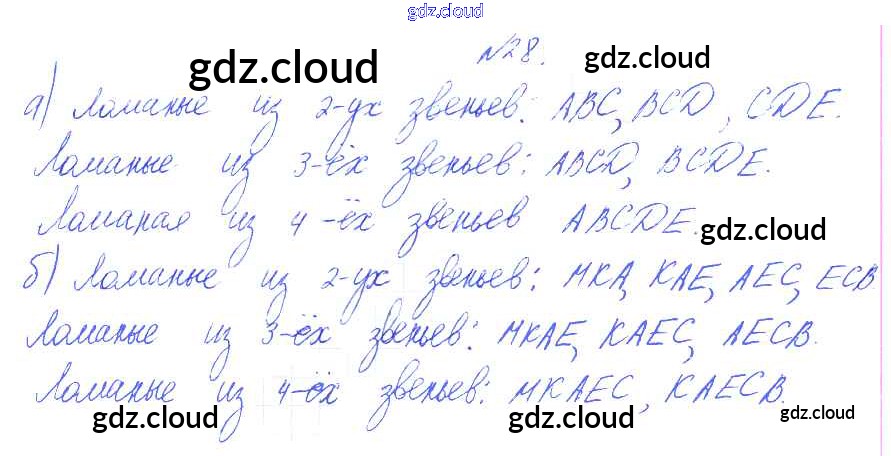 gdz.cloud
№28.
gdz.cloud gdz.cloud
а) Ломаные из 2-ух звеньев: ABC, BCD, CDE.
Ломаные из 3-ёх звеньев: ABCD, BCDE.
Ломаная из 4-ёх звеньев ABCDE.
gdz.cloud
б) Ломаные из 2-ух звеньев: MKA, KAE, AEC, ECB
Ломаные из 3-ёх звеньев: MKAE, KAEC, AECB.
Ломаные из 4-ёх звеньев: MKAEC, KAECB.
gdz.cloud gdz.cloud gdz.cloud